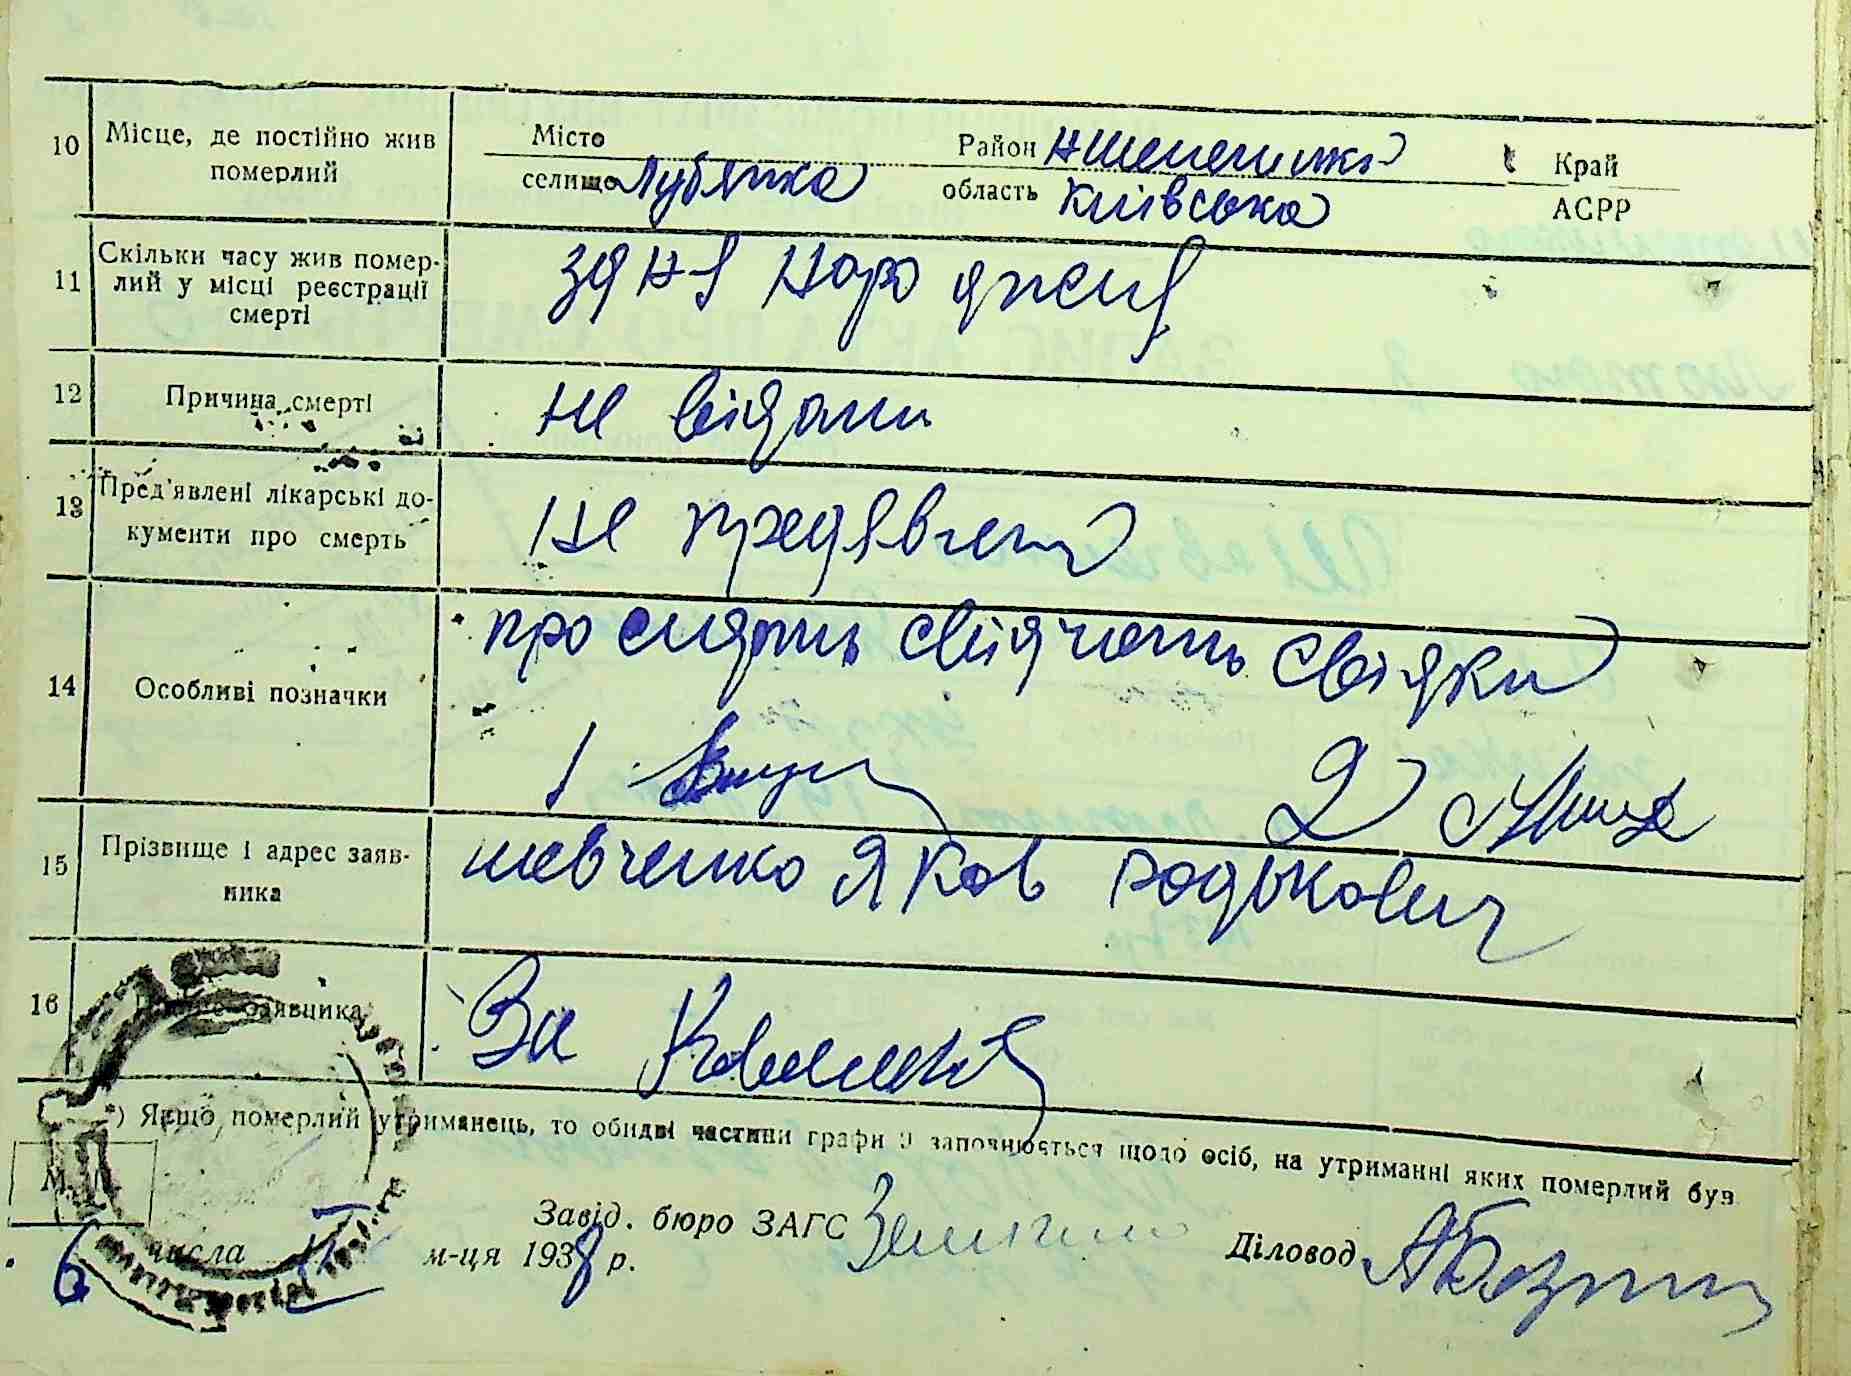 10 Місце, де постійно жив померлий
Місто
селище Лубянка
Район
область Київська
Край
АСРР
11 Скільки часу жив помер-
лий у місці реєстрації
смерті
здня народженя
12 Причина смерті
не відани
13 Пред'явлені лікарські до-
кументи про смерть
не предявлени
14 Особливі позначки
про смерть свідчать свідки
1
2
15 Прізвище і адрес заяв-
ника
шевченко Яков родькович
16 заявника
За
*) Якщо померлий утриманець, то обидві частини графи 9 заповнюється щодо осіб, на утриманні яких померлий був
М. П.
Завід. бюро ЗАГС
Діловод
6 числа II м-ця 1938 р.